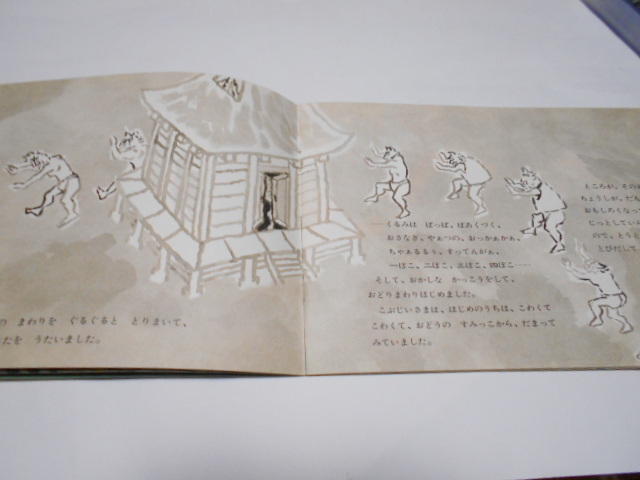 の まわりを ぐるぐると とりまいて、
たを うたいました。
くるみは ぱっぱ、ばあくづく、
おさなぎ、やぁつの、おっかぁかぁ、
ちゃぁるるぅ、すってんがぁ、
一ぼこ、二ぼこ、三ぼこ、四ぼこ……
そして、おかしな かっこうをして、
おどりまわりはじめました。
こぶじいさまは、はじめのうちは、こわくて
こわくて、おどうの すみっこから、だまって
みていました。
ところが、その
ちょうしが、だん
おもしろくなっ
じっとしてい
ので、とうと
とびだして